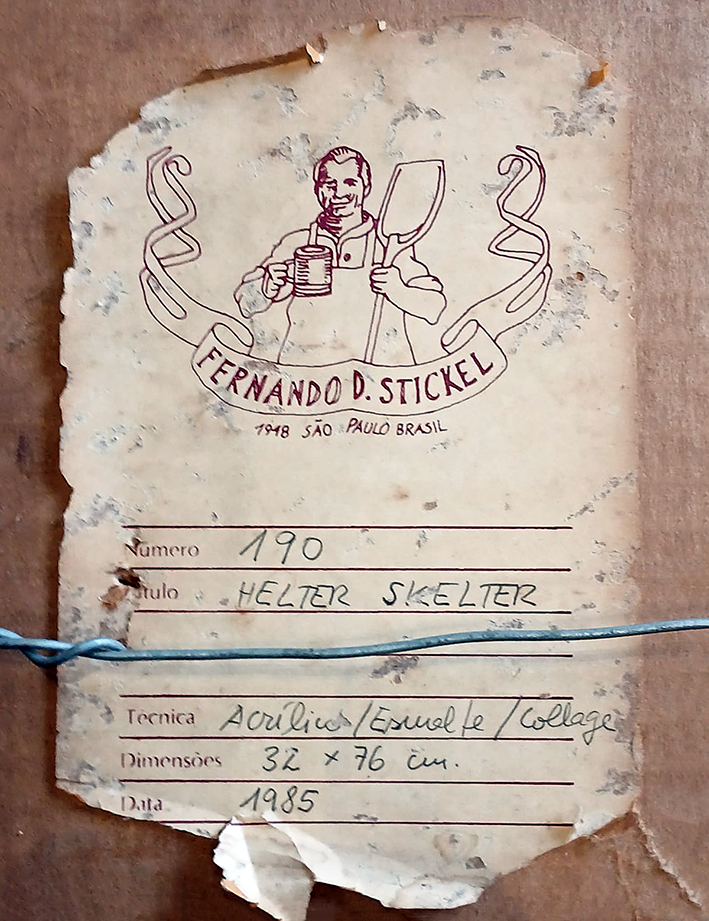 FERNANDO D. STICKEL
1948 SÃO PAULO BRASIL
Número 190
Título HELTER SKELTER
Técnica Acrílico/Esmalte/Collage
Dimensões 32 x 76 cm.
Data 1985